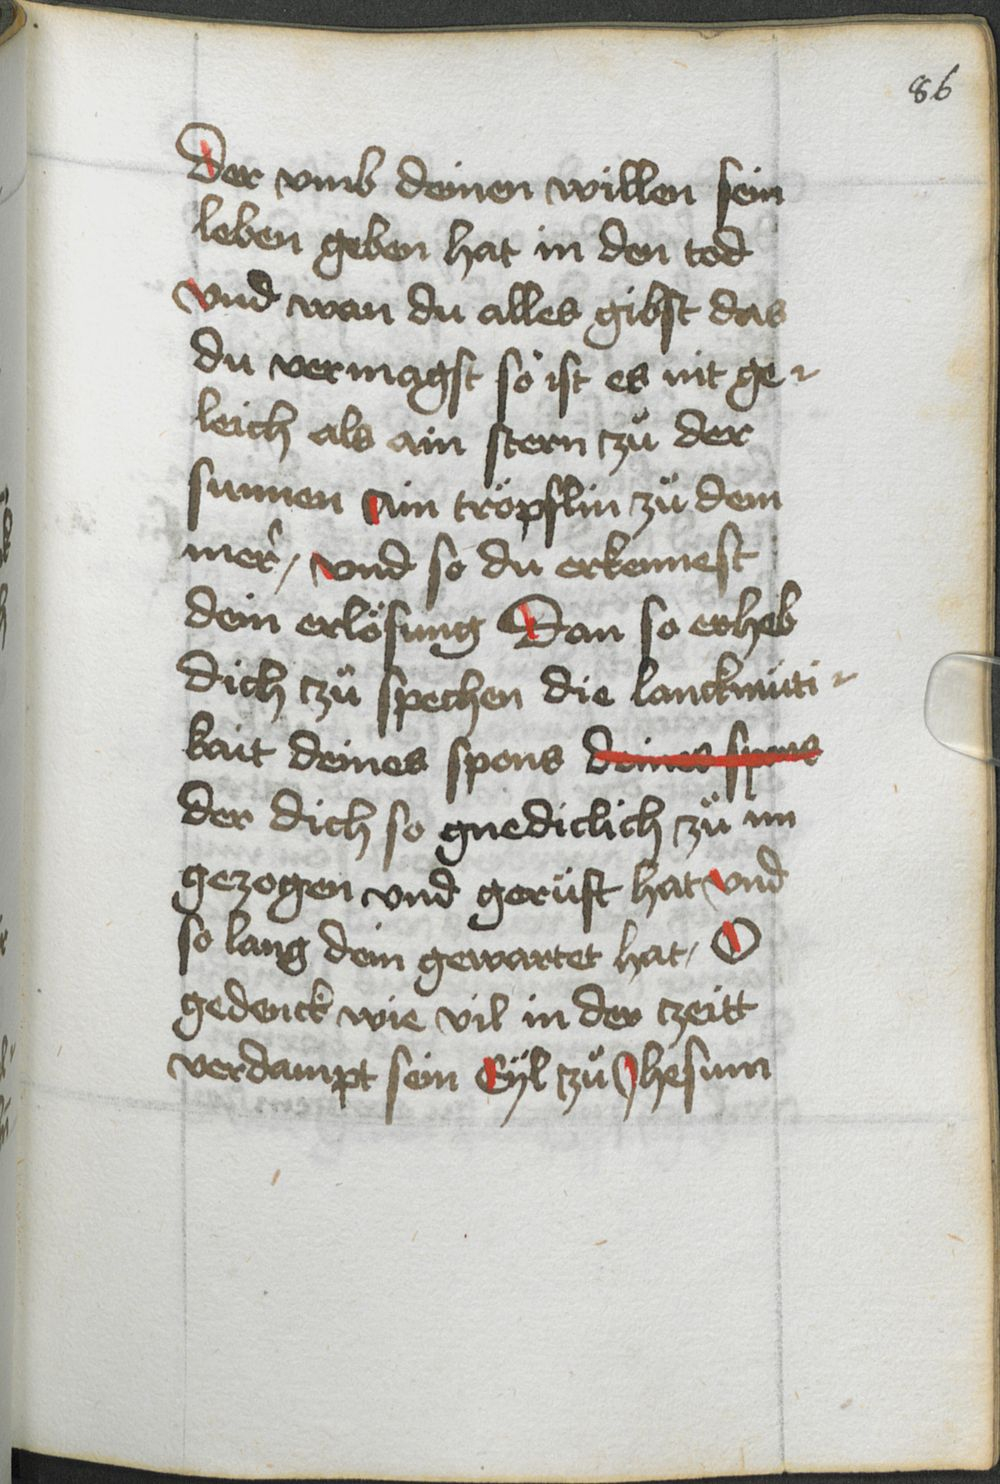 86
Der vmb deinen willen sein
leben geben hat in den tod
vnd wan du alles gibst das
du vermagst so ist es nit ge-
leich als ain stern zů der
sunnen Ain tröpflin zů dem
mer / vnd so du erkennest
dein erlösung Dan so erheb
dich zů spechen die lanckmüti-
kait deines spons deines spons
der dich so gnediclich zů im
gezogen vnd gerüft hat vnd
so lang dein gewartet hat / O
gedenck wie vil in der czeitt
verdampt sein Eÿl zů Jhesum